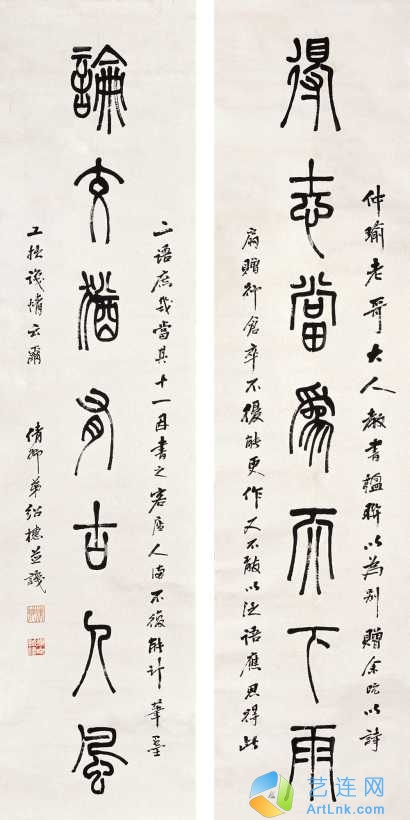 得志當為天下雨
論交猶有古人風
仲瑜老哥大人教書楹聯以為別贈余既以詩
扇贈行倉卒不獲能更作又不敢以泛語應思得此
二語庶幾當其十一因書之客居人海不復能計筆墨
工拙識情云爾
倩卿弟紹並識
艺连网
ArtLnk.com